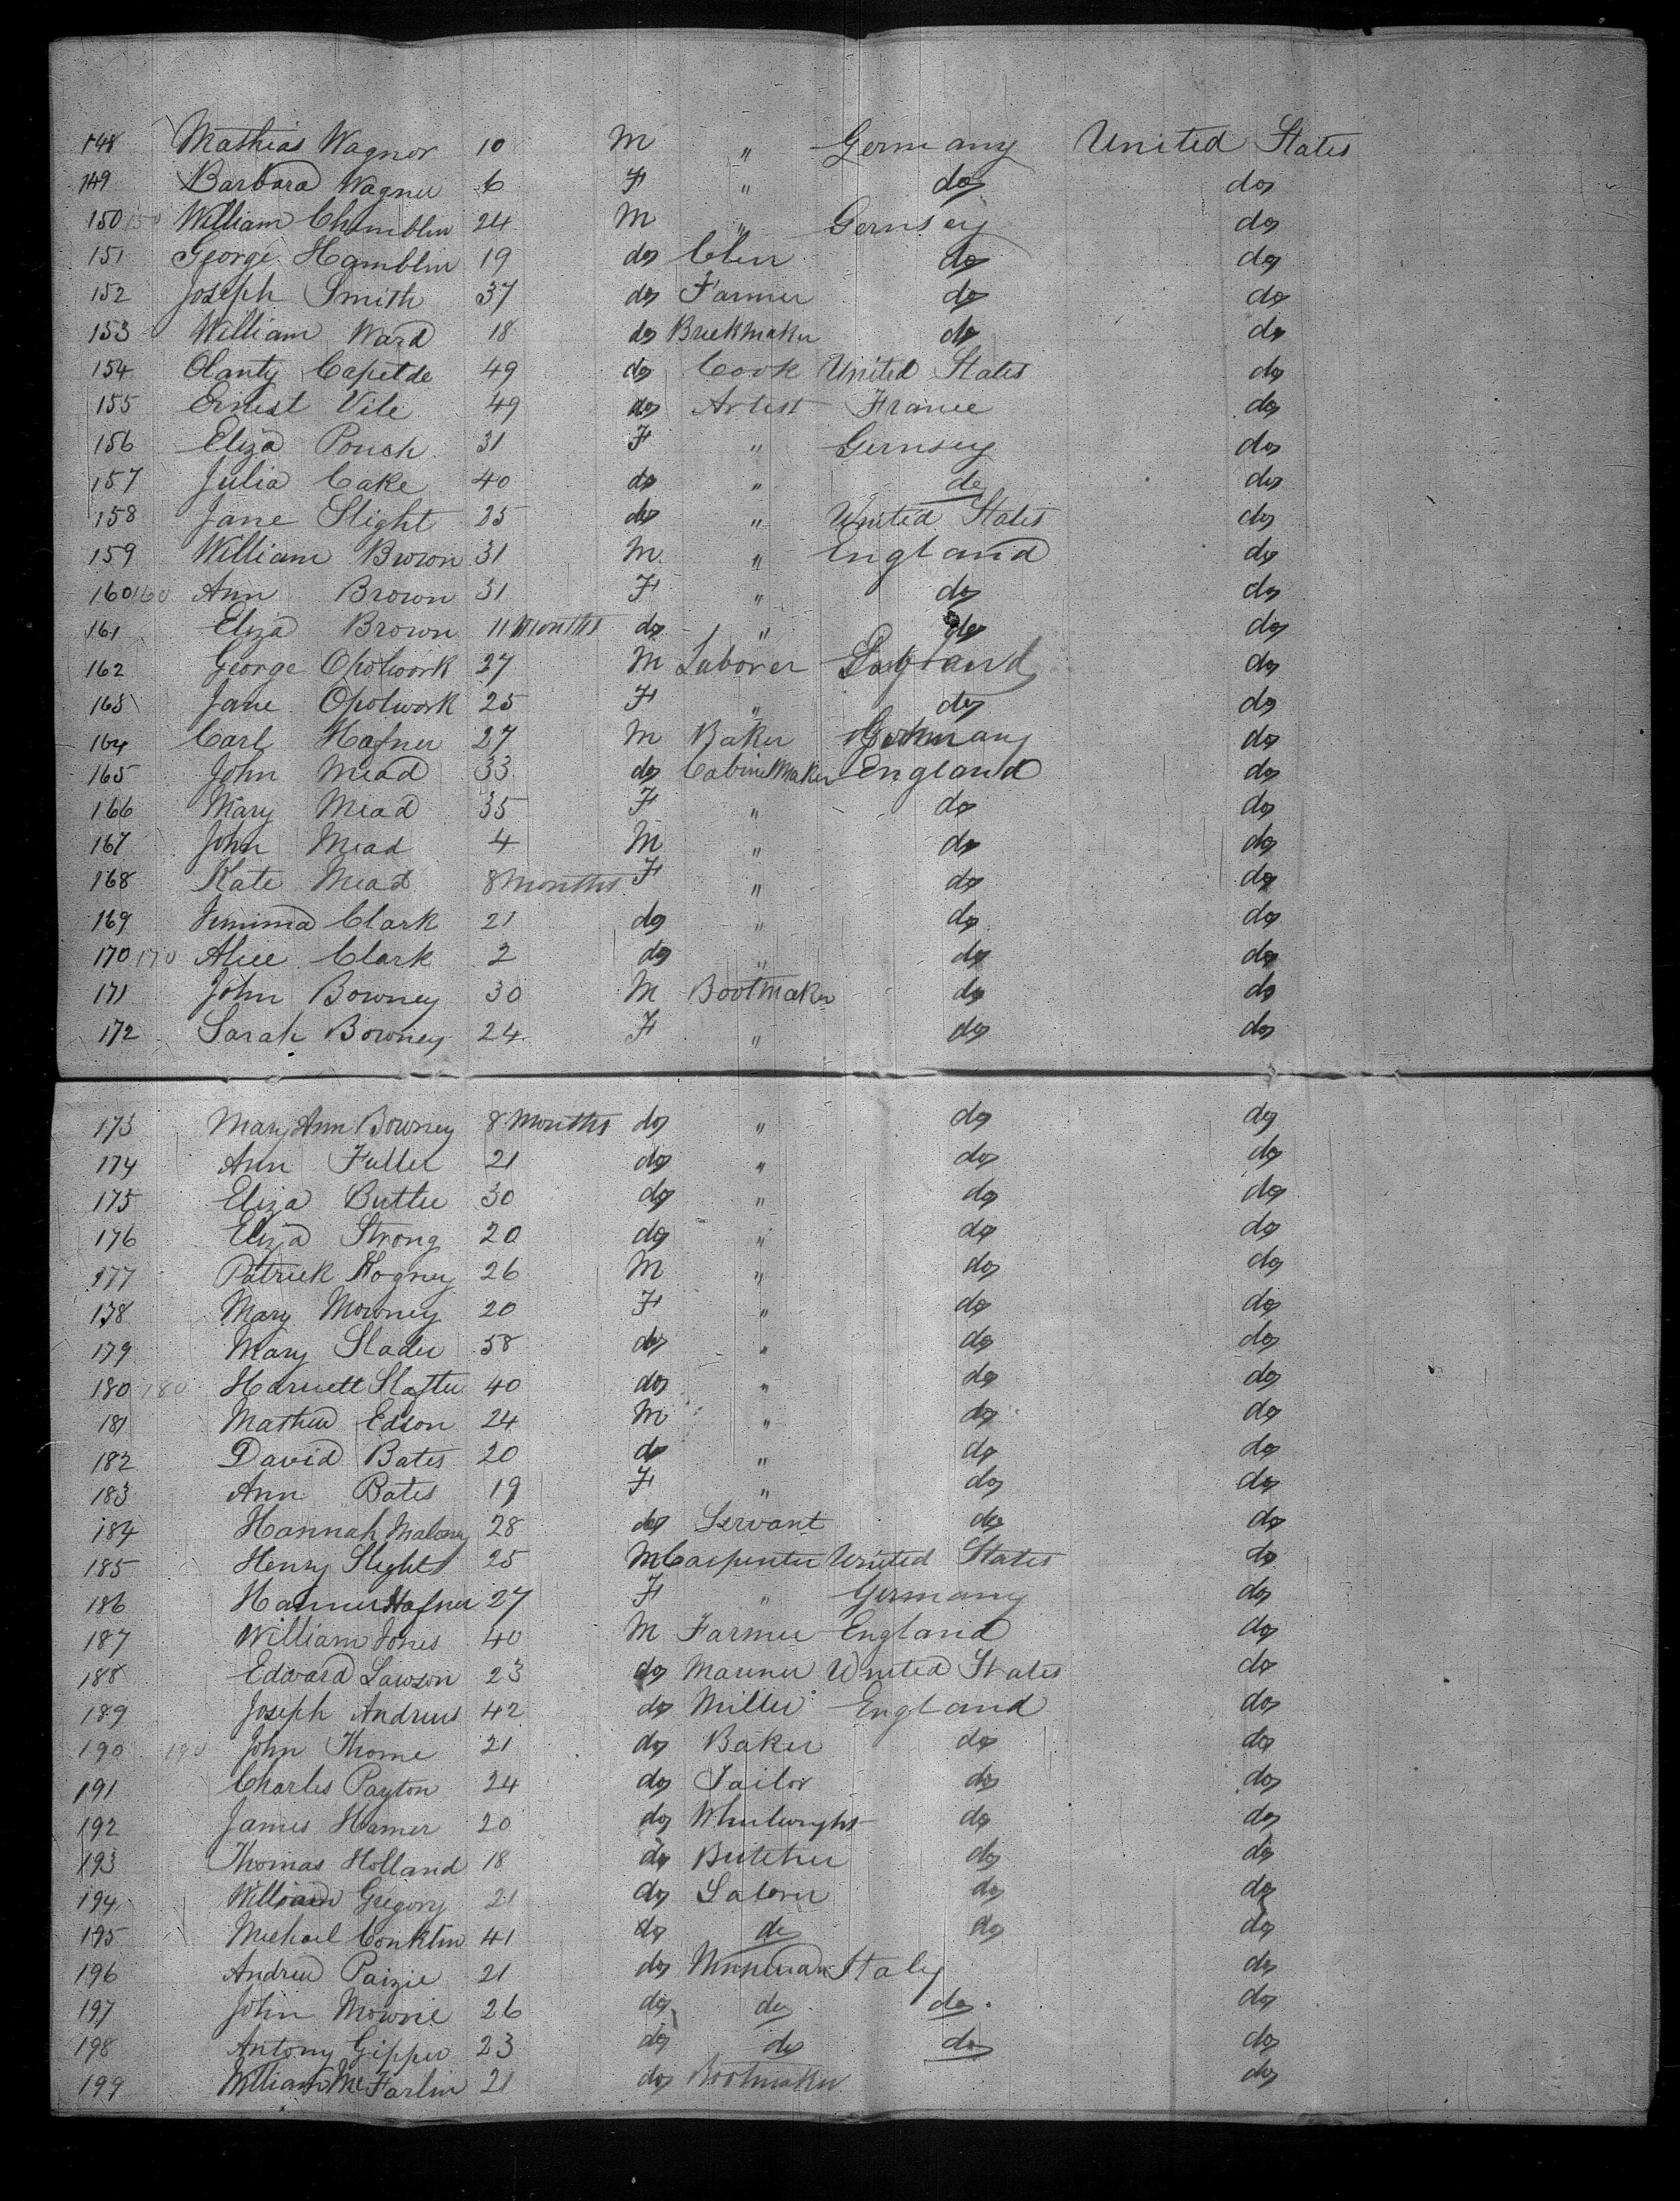 148 Mathias Wagnor 10 M " Germany United States
149 Barbara Wagner 6 F " do do
150 150 William Chamblin 24 M " Gernsey do
151 George Hamblin 19 do do do
152 Joseph Smith 37 do Farmer do do
153 William Ward 18 do Brickmaker do do
154 Olanty Capetde 49 do Cook United States do
155 Ernest Vile 49 do Artist France do
156 Eliza Pouch 31 F " Gernsey do
157 Julia Cake 40 do " do do
158 Jane Slight 25 do " United States do
159 William Brown 31 M " England do
160 160 Ann Brown 31 F " do do
161 Eliza Brown 11 Months do " do do
162 George Opolwork 27 M Laborer England do
163 Jane Opolwork 25 F " do do
164 Carl Hafner 27 M Baker Germany do
165 John Mead 33 do Cabinet Maker England do
166 Mary Mead 35 F " do do
167 John Mead 4 M " do do
168 Kate Mead 8 Months F " do do
169 Jemima Clark 21 do " do do
170 170 Alice Clark 2 do " do do
171 John Bowney 30 M Bootmaker do do
172 Sarah Bowney 24 F " do do
173 Mary Ann Bowney 8 Months do " do do
174 Ann Fuller 21 do " do do
175 Eliza Butler 30 do " do do
176 Eliza Strong 20 do " do do
177 Patrick Hogney 26 M " do do
178 Mary Mowney 20 F " do do
179 Mary Slader 58 do " do do
180 180 Harriett Slafter 40 do " do do
181 Mathew Edson 24 M " do do
182 David Bates 20 do " do do
183 Ann Bates 19 F " do do
184 Hannah Maloney 28 do Servant do do
185 Henry Slight 25 M Carpenter United States do
186 Hanner Hafner 27 F " Germany do
187 William Jones 40 M Farmer England do
188 Edward Lawson 23 do Mariner United States do
189 Joseph Andrews 42 do Miller England do
190 190 John Thorne 21 do Baker do do
191 Charles Payton 24 do Tailor do do
192 James Hamer 20 do Wheelwright do do
193 Thomas Holland 18 do Butcher do do
194 William Gregory 21 do Laborer do do
195 Michael Conklin 41 do do do do
196 Andrew Paizie 21 do Italey do
197 John Mowrie 26 do do do do
198 Antony Gipper 23 do do do do
199 William McFarlin 21 do Bootmaker do